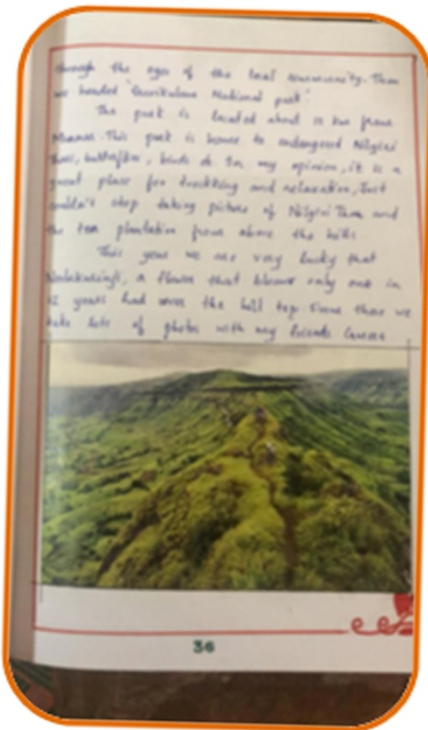 through the eyes of the local community. Then
we headed "Eravikulam National park".
The park is located about 15 km from
Munnar. This park is home to endangered Nilgiri
Thar, butterflies, birds etc. In my opinion, it is a
great place for trekking and relaxation, Just
couldn't stop taking picture of Nilgiri Thar and
the tea plantation from above the hills.
This year we are very lucky that
a flower that blooms only one in
12 years had over the hill top. From there we
take lots of photos with my friends
36